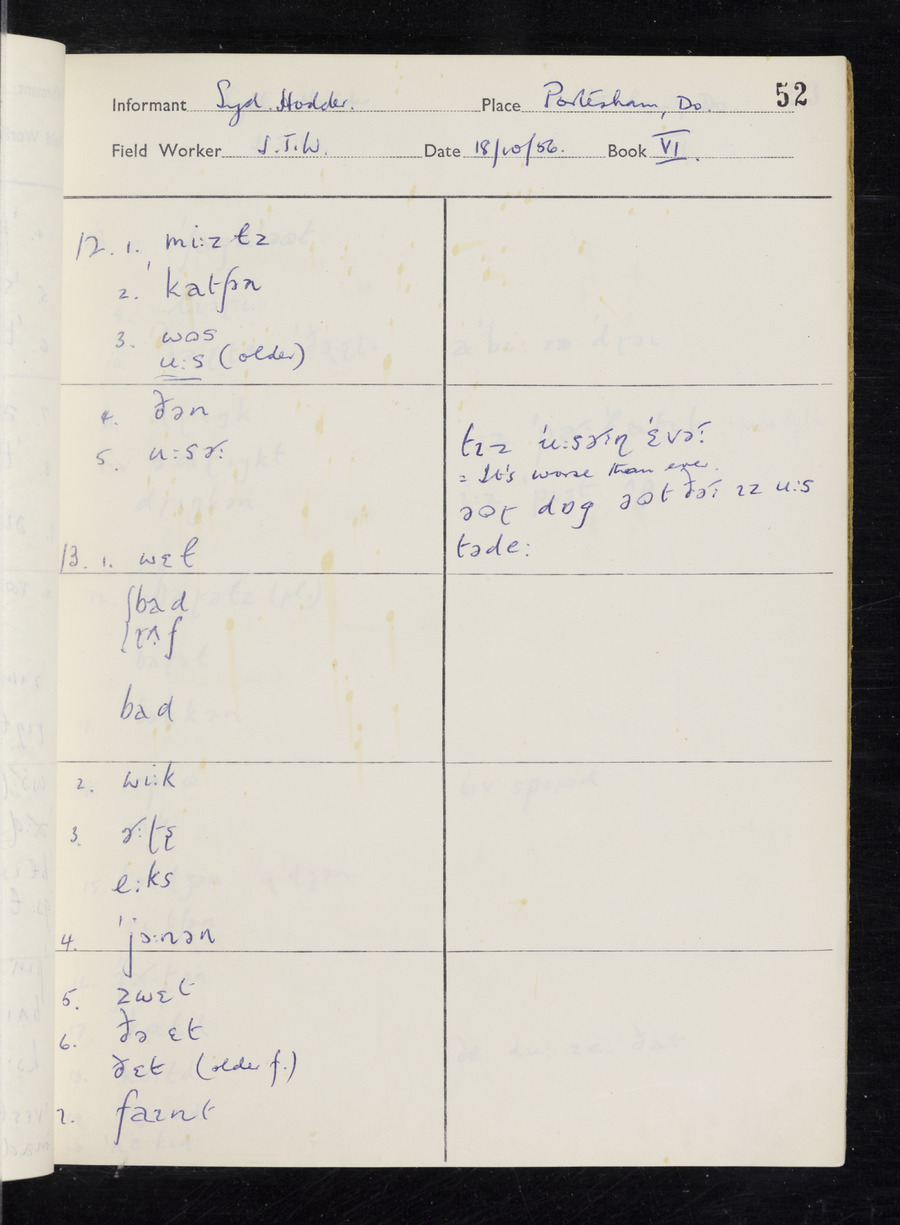 52
Informant Syd. Hodder. Place Portesham, Do.
Field Worker S.T.W. Date 18/10/56. Book VI.
12. 1. miːzɫz
2. ˈkatʃɪn
3. wɒs
uːs (older)
4. ðən
5. uːsɚː
tɪz ˈuːsɚːn ˈɛvɚː
= It's worse than ever.
dɒg ðɚː ɪz uːs
tədeː
13. 1. wɛɫ
bad
bad
2. wiːk
3.
eːks
4. ˈjɔːnən
5. zwɛt
6. ðə ɛt
ðɛt (older f.)
7. faɪnt